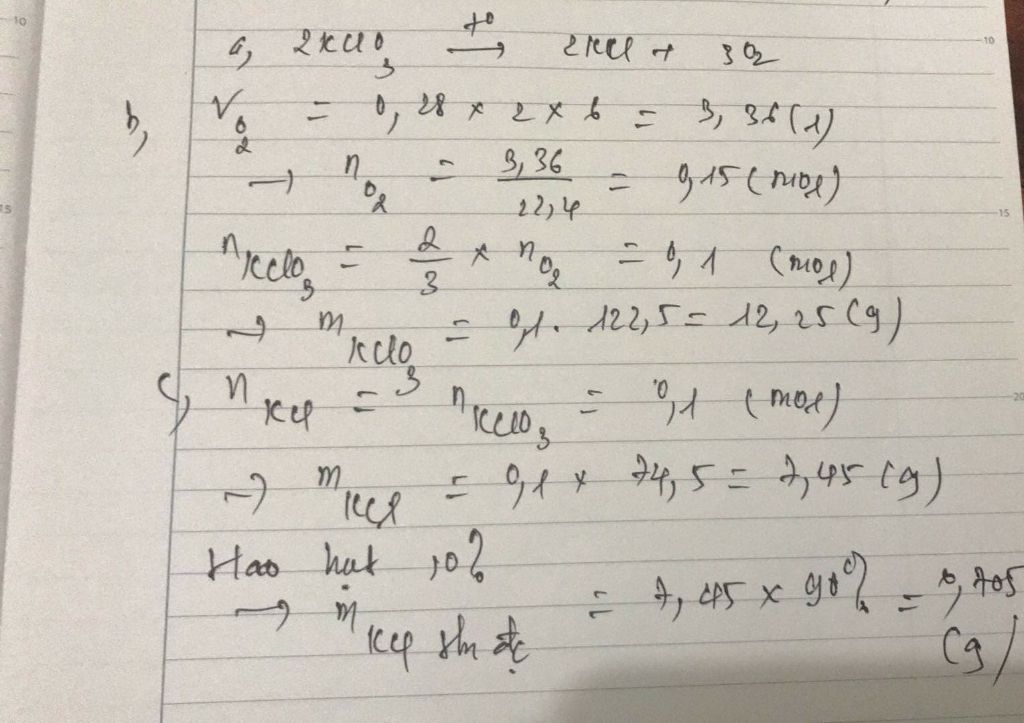 a, 2KClO3 t° → 2KCl + 3O2
b, VO2 = 0,28 × 2 × 6 = 3,36 (l)
→ nO2 = 3,36/22,4 = 0,15 (mol)
nKClO3 = 2/3 × nO2 = 0,1 (mol)
→ mKClO3 = 0,1 . 122,5 = 12,25 (g)
c, nKCl = nKClO3 = 0,1 (mol)
→ mKCl = 0,1 × 74,5 = 7,45 (g)
Hao hụt 10%
→ mKCl thu đc = 7,45 × 90% = 6,705 (g)
10
15
20
10
15